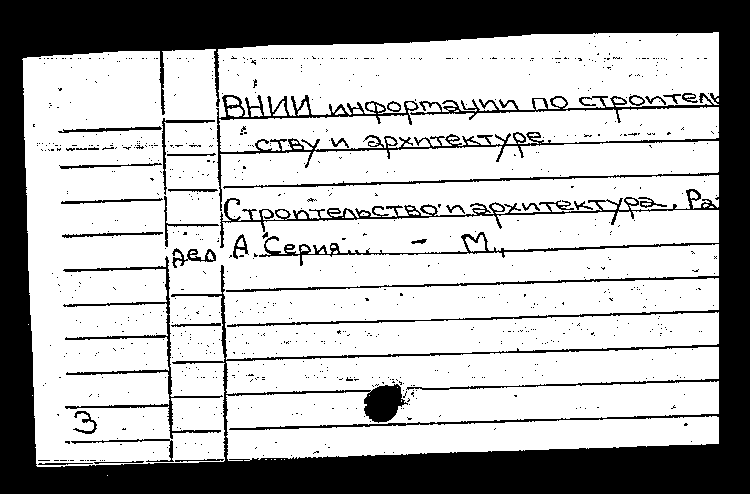 ВНИИ информации по строитель
ству и архитектуре.
Строительство и архитектура. Ра
А. Серия.... - М.,
дел
3